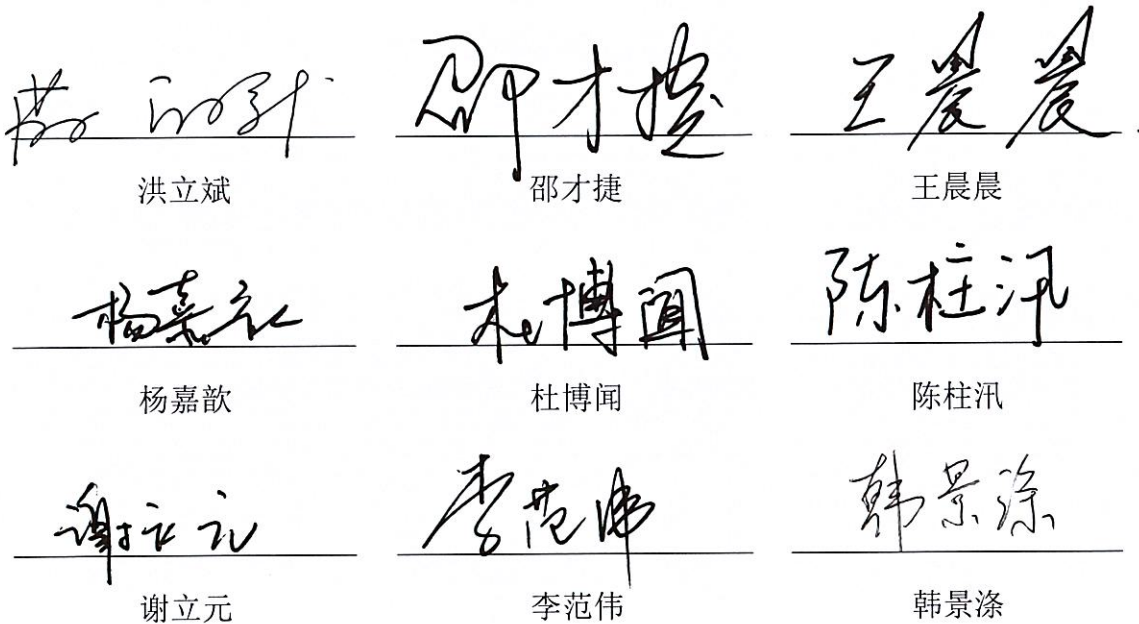 邵才捷 王晨晨
洪立斌 邵才捷 王晨晨
杨嘉 杜博闻 陈柱汛
杨嘉歆 杜博闻 陈柱汛
谢立元 李范伟 韩景涤
谢立元 李范伟 韩景涤